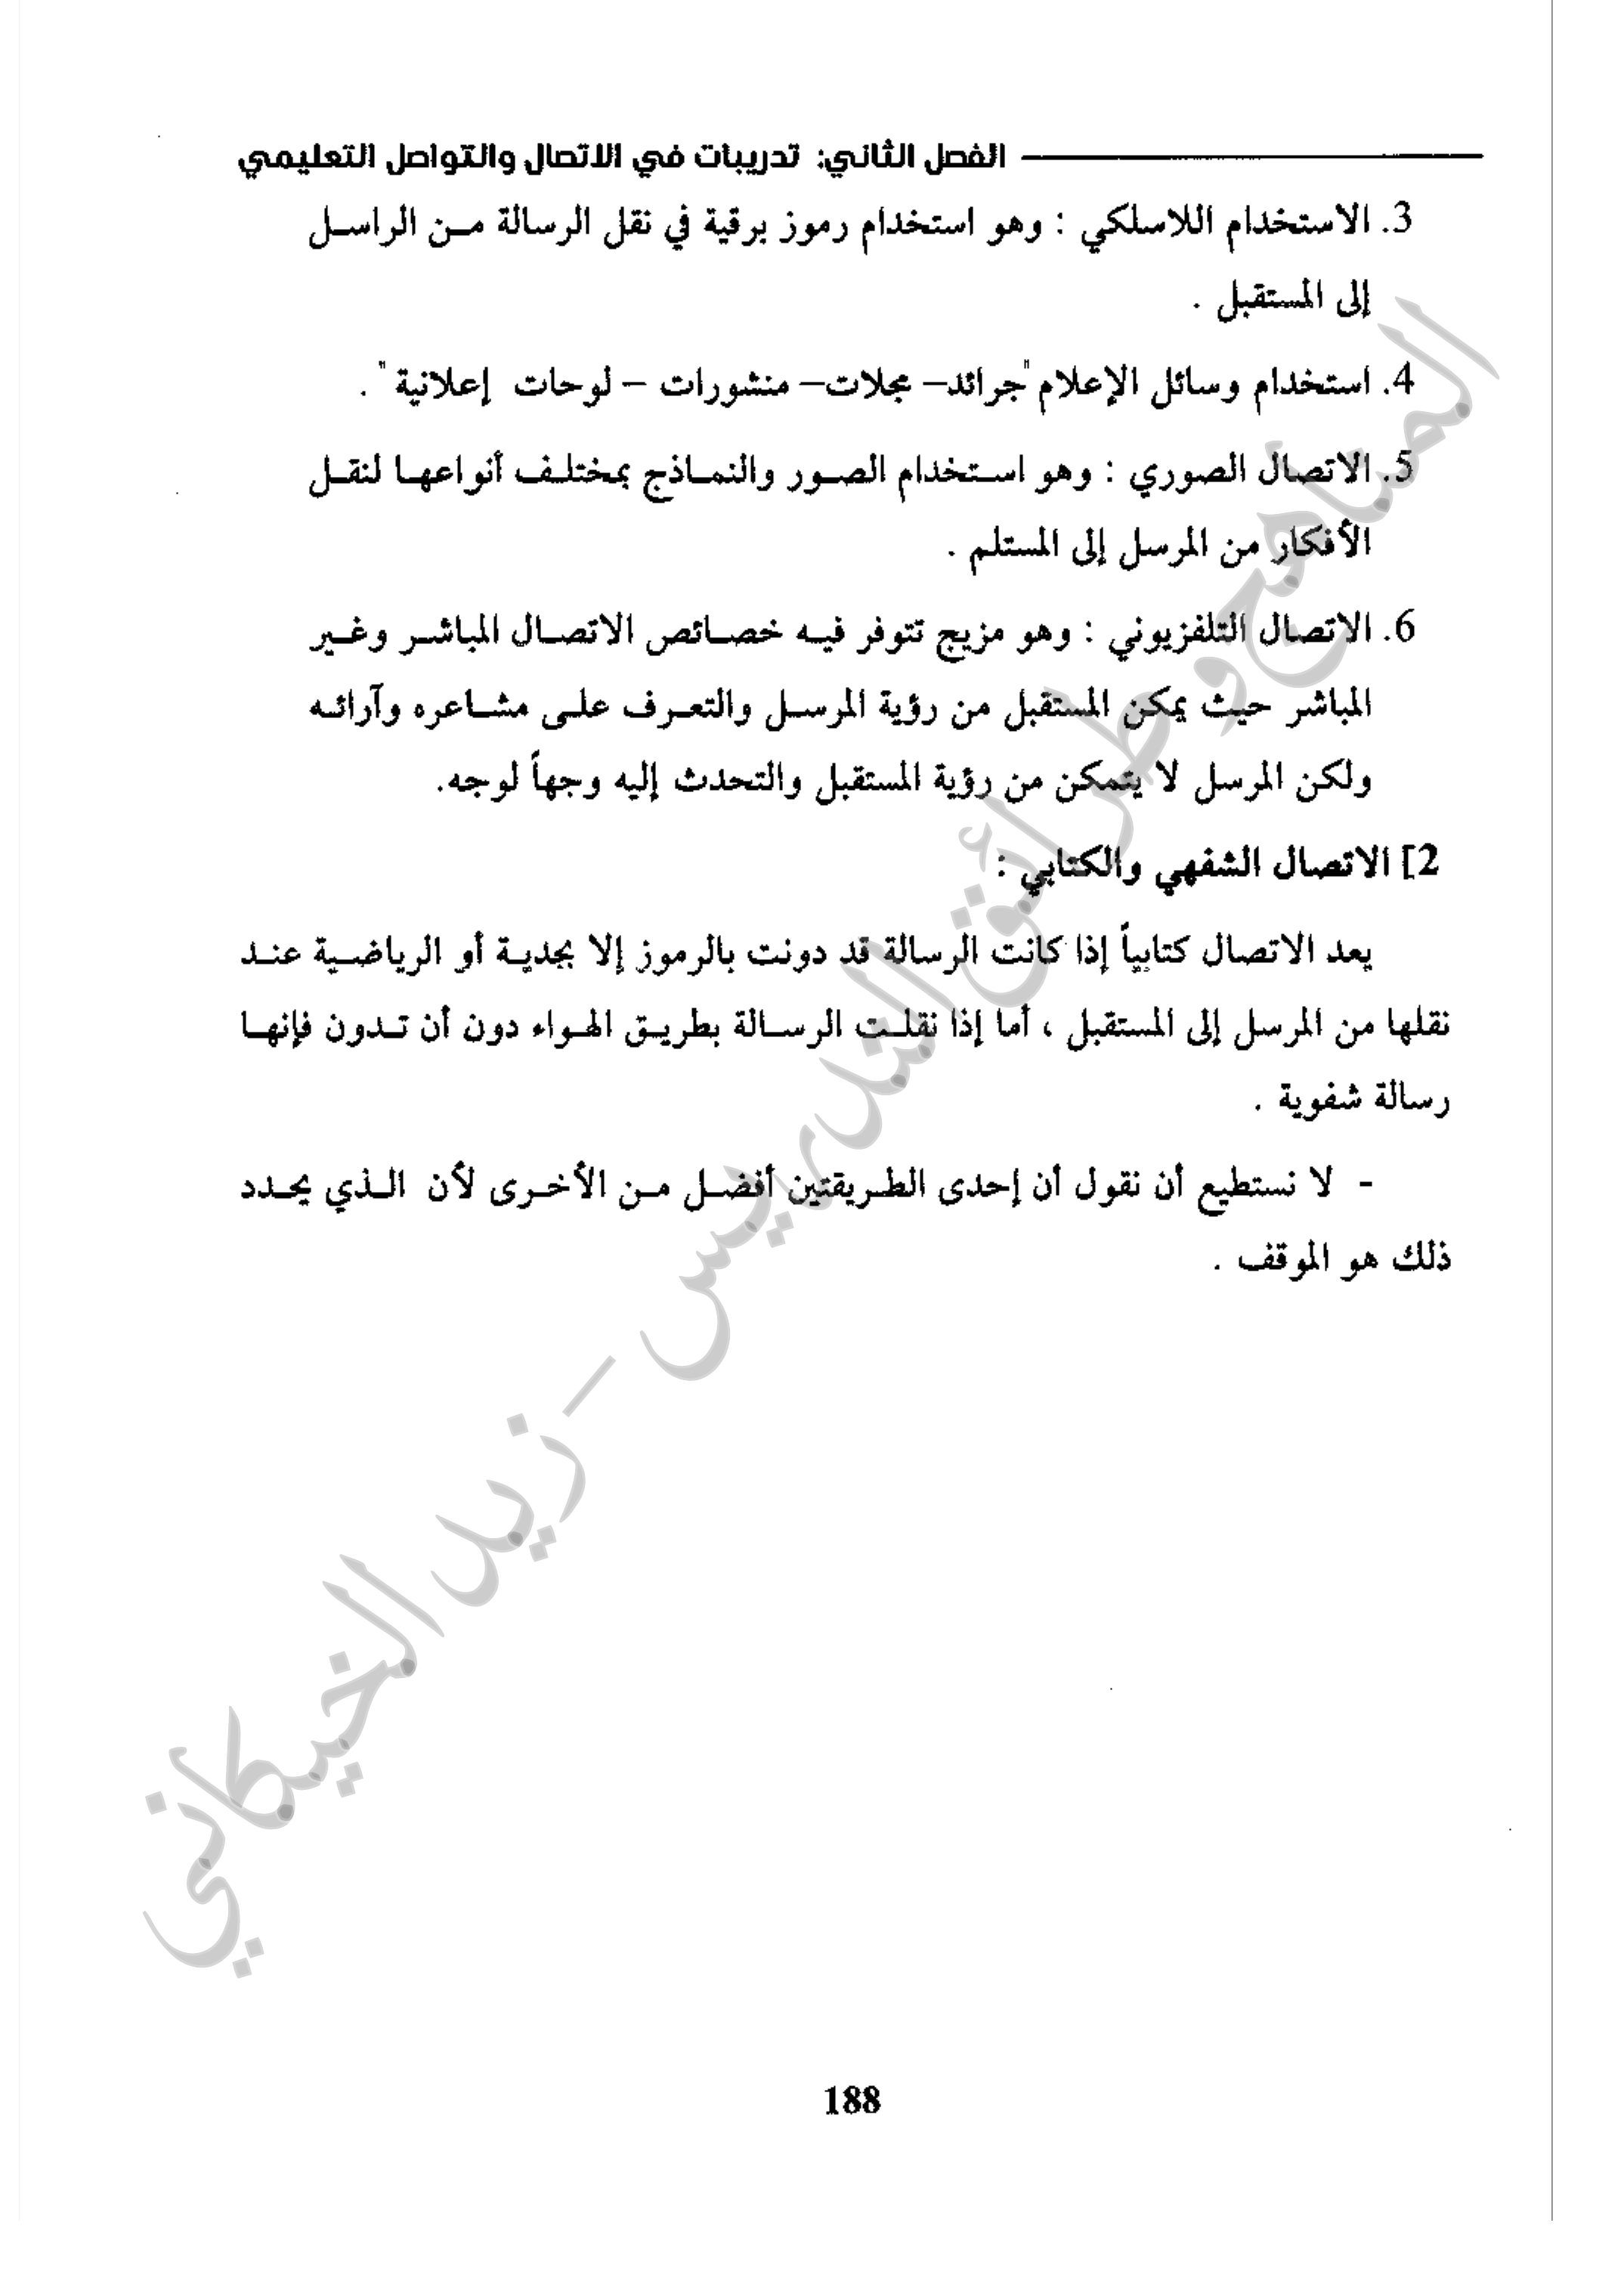 الفصل الثاني: تدريبات في الاتصال والتواصل التعليمي
3. الاستخدام اللاسلكي : وهو استخدام رموز برقية في نقل الرسالة من الراسل
إلى المستقبل .
4. استخدام وسائل الإعلام "جرائد– مجلات– منشورات – لوحات إعلانية " .
5. الاتصال الصوري : وهو استخدام الصور والنماذج بمختلف أنواعها لنقل
الأفكار من المرسل إلى المستلم .
6. الاتصال التلفزيوني : وهو مزيج تتوفر فيه خصائص الاتصال المباشر وغير
المباشر حيث يمكن المستقبل من رؤية المرسل والتعرف على مشاعره وآرائه
ولكن المرسل لا يتمكن من رؤية المستقبل والتحدث إليه وجهاً لوجه.
2] الاتصال الشفهي والكتابي :
يعد الاتصال كتابياً إذا كانت الرسالة قد دونت بالرموز إلا بجدية أو الرياضية عند
نقلها من المرسل إلى المستقبل ، أما إذا نقلت الرسالة بطريق الهواء دون أن تدون فإنها
رسالة شفوية .
- لا نستطيع أن نقول أن إحدى الطريقتين أفضل من الأخرى لأن الذي يحدد
ذلك هو الموقف .
المناهج وطرائق التدريس – زيد الخيكاني
188